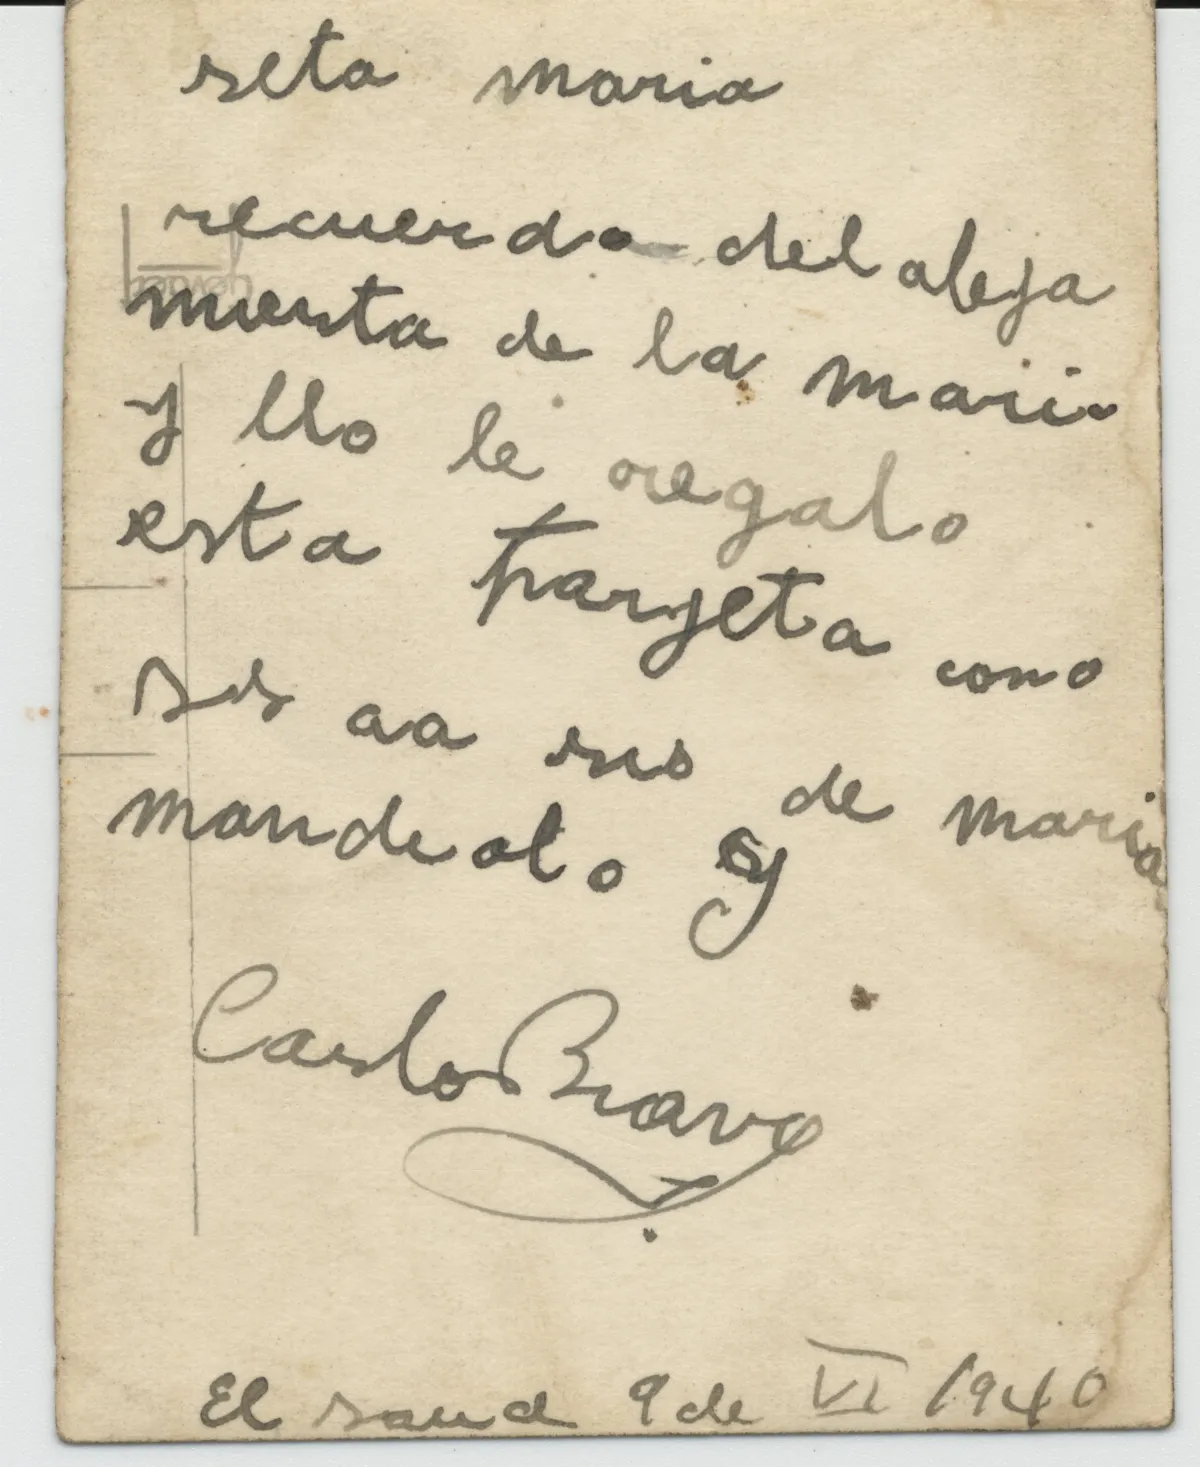 seta maria
recuerdo del aleja
mienta de la mari
y llo le regalo
esta tarjeta como
aa sus de maria
mandeolo y
Carlo Bravo
El saud 9 de VI 1940